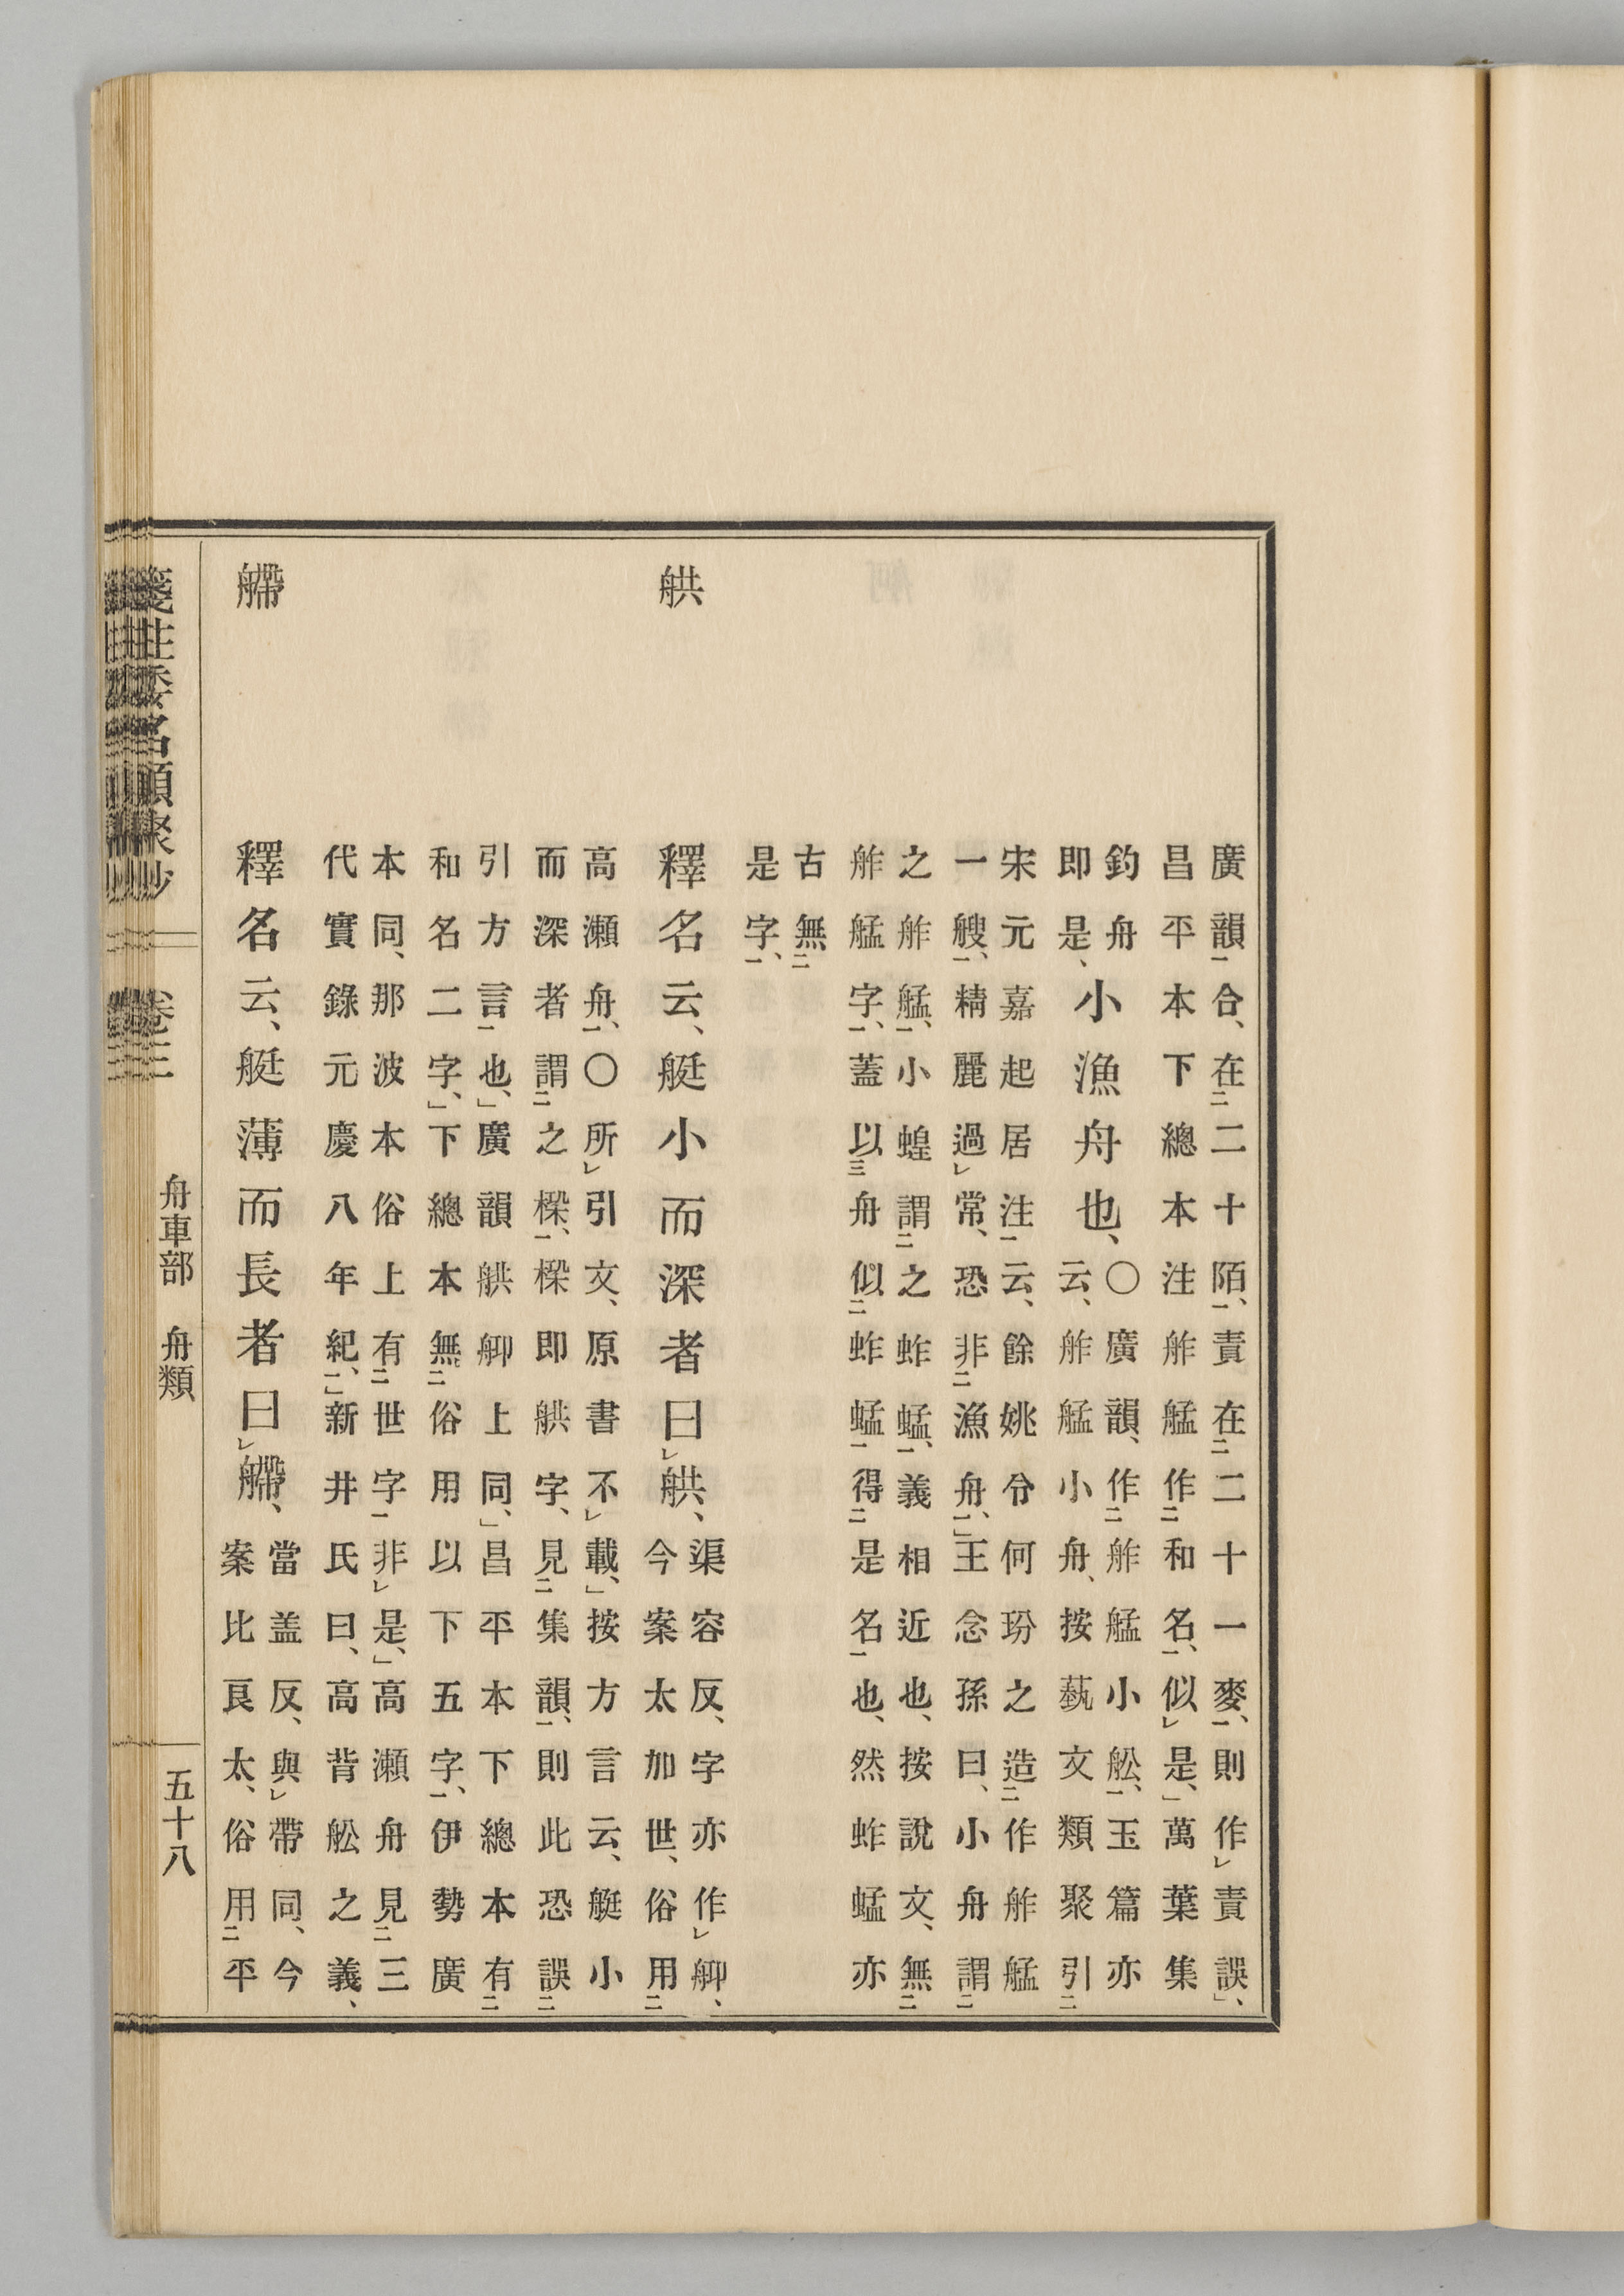 廣韻合、在二十陌、責在二十一麥、則作責誤、
昌平本下總本注舴艋作和名、似是、萬葉集
釣舟
即是、
小漁舟也、
○廣韻、作舴艋小舩、玉篇亦
云、舴艋小舟、按蓺文類聚引
宋元嘉起居注云、餘姚令何玢之造作舴艋
一艘、精麗過常、恐非漁舟、王念孫曰、小舟謂
之舴艋、小蝗謂之蚱蜢、義相近也、按說文、無
舴艋字、蓋以舟似蚱蜢得是名也、然蚱蜢亦
古無
是字、
舼
釋名云、艇小而深者曰舼、
渠容反、字亦作、
今案太加世、俗用
高瀨舟、○所引文、原書不載、按方言云、艇小
而深者謂之樑、樑即舼字、見集韻、則此恐誤
引方言也、廣韻舼上同、昌平本下總本有
和名二字、下總本無俗用以下五字、伊勢廣
本同、那波本俗上有世字非是、高瀨舟見三
代實錄元慶八年紀、新井氏曰、高背舩之義、
艜
釋名云、艇薄而長者曰艜、
當盖反、與帶同、今
案比良太、俗用平
箋注倭名類聚抄 卷三 舟車部 舟類 五十八